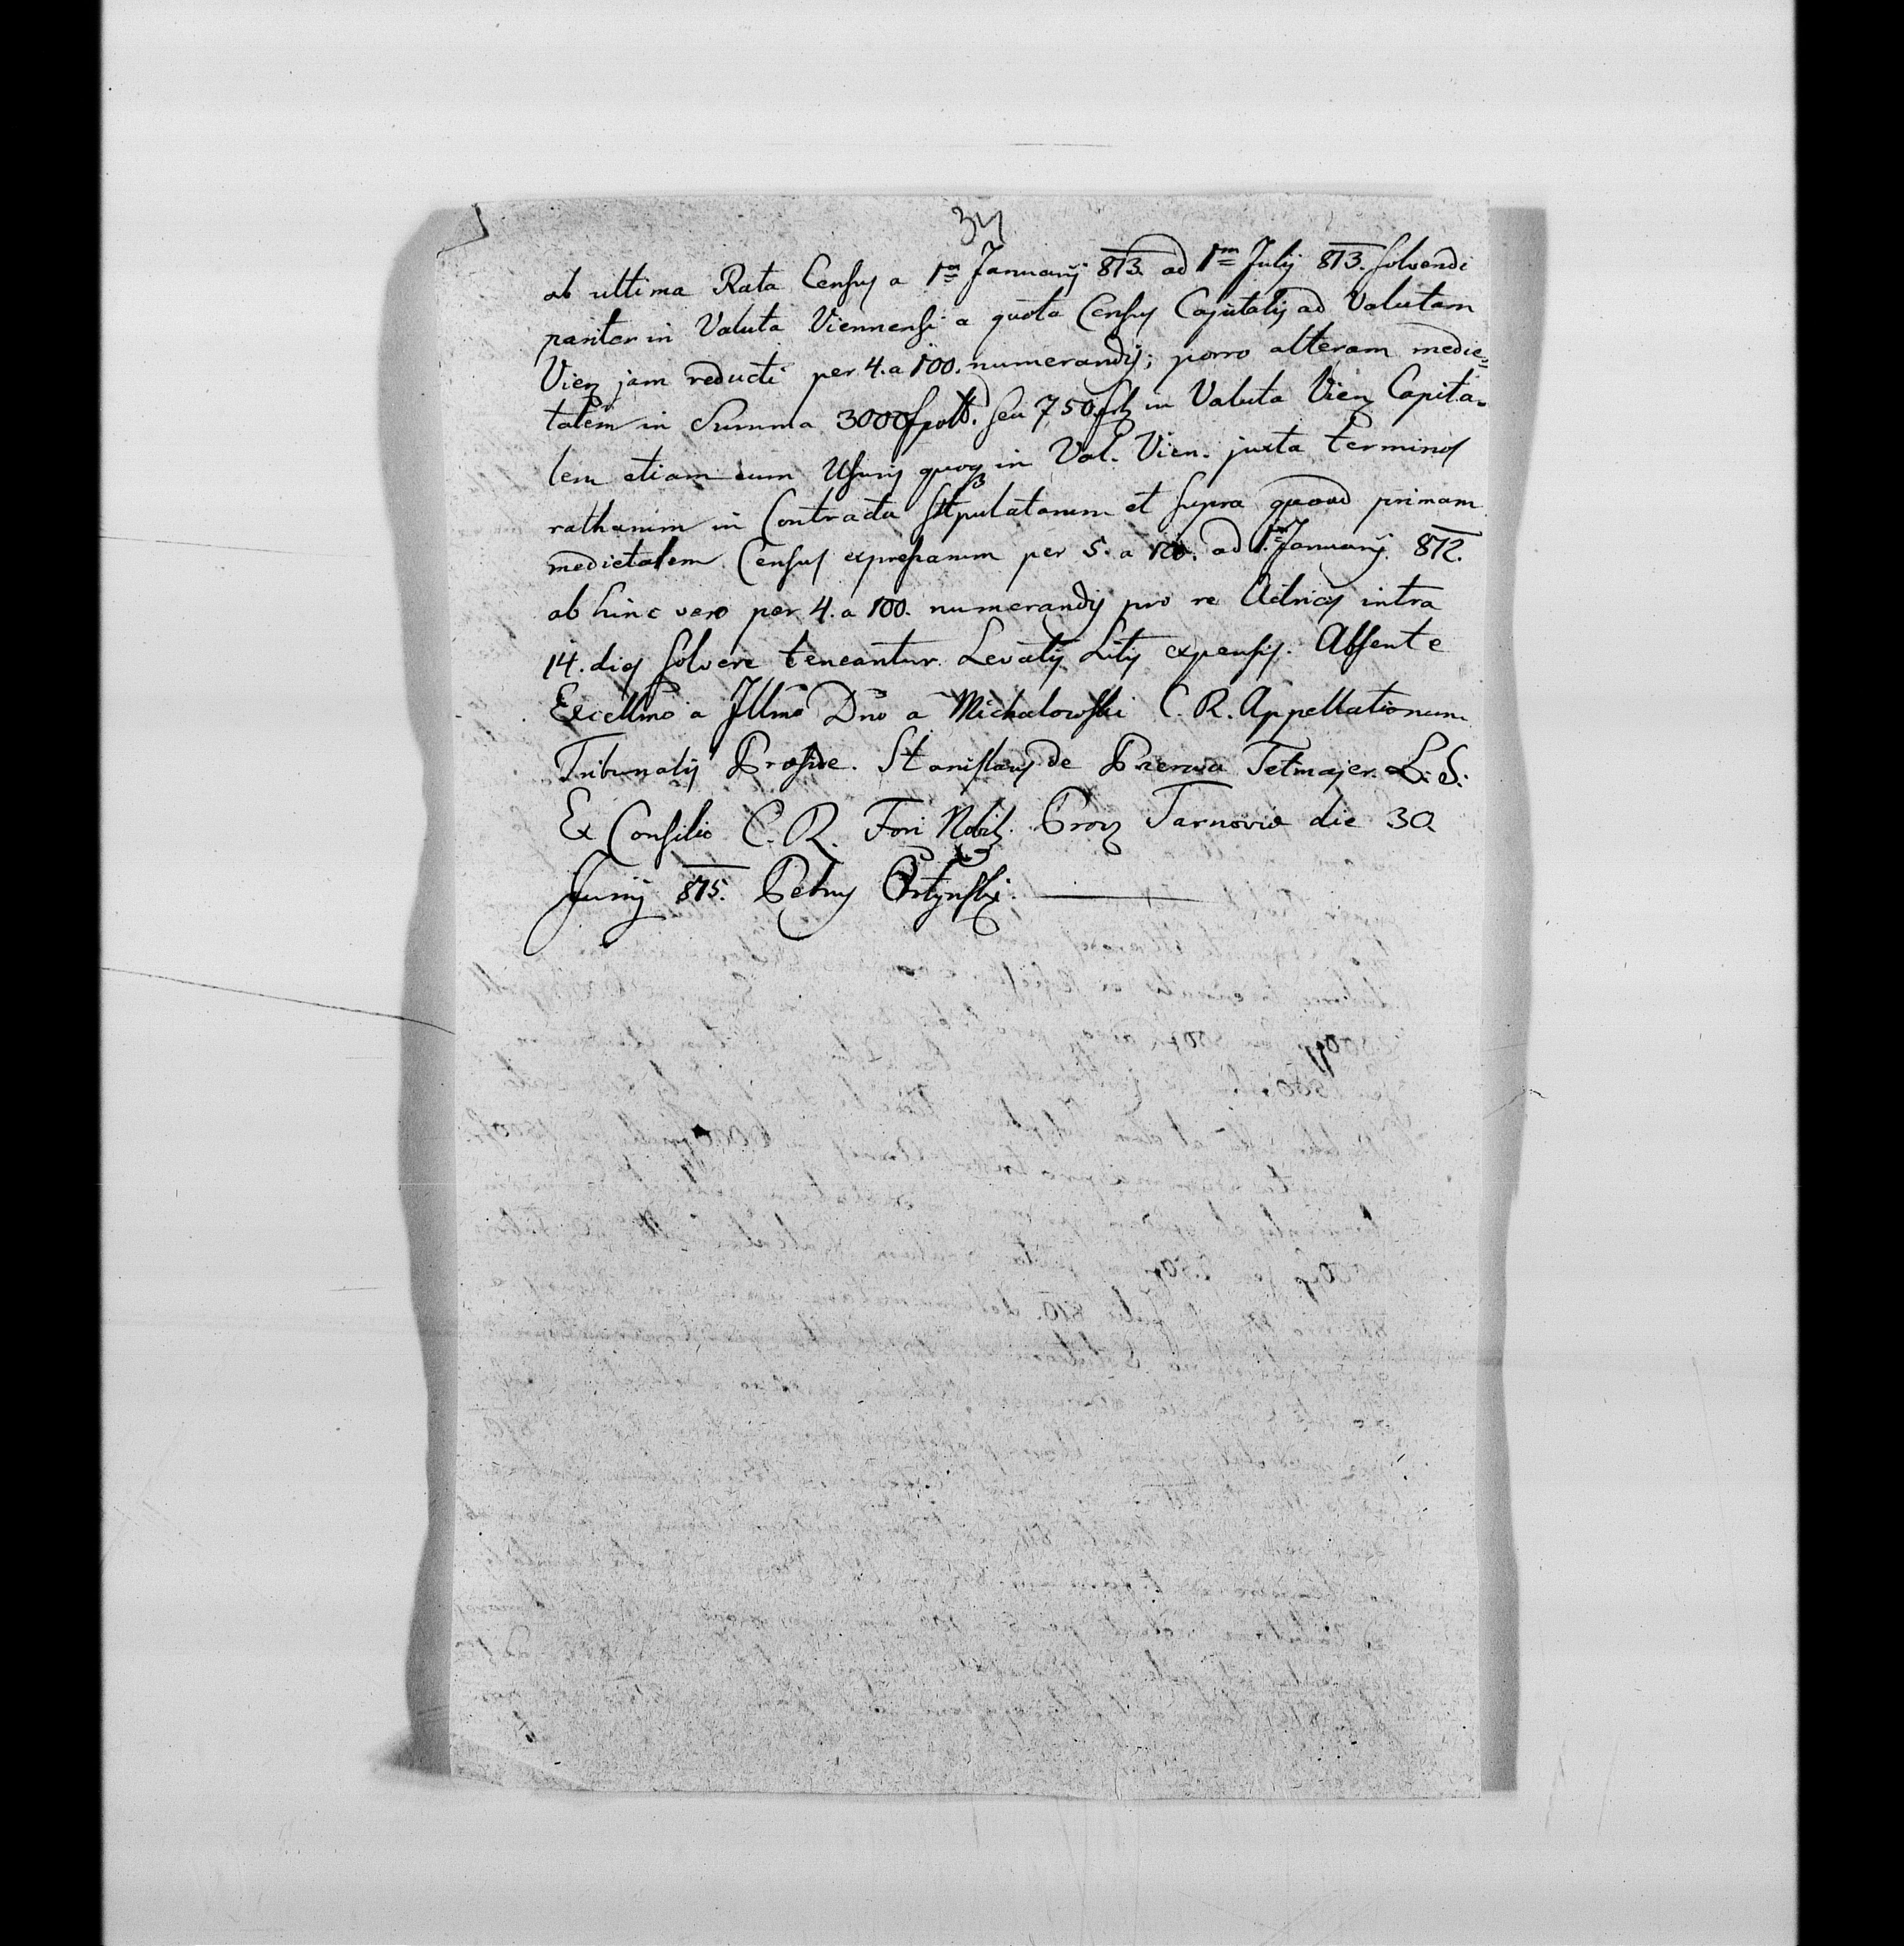 34
ab ultima Rata Census a 1ma Januarij 813. ad 1mam Julij 813. solvendi
pariter in Valuta Viennensi a quota Census Capitalis ad Valutam
Vien jam reducti per 4. a 100. numerandis; porro alteram medie=
tatem in Summa 3000 fpoll. seu 750 frh in Valuta Vien Capita=
lem etiam cum Usuris quoq in Val. Vien. juxta terminos
ratharum in Contractu stipulatarum et supra quoad primam
medietatem Census expressarum per 5. a 100. ad 1. Januarij 812.
ab hinc vero per 4. a 100. numerandis pro re Actricis intra
14. dies solvere teneantur. Levatis Litis expensis. Absente
Excellmo a Illmo Dno a Michalowski C. R. Appellationum
Tribunalis Præside. Stanislaus de Przerwa Tetmajer. L. S.
Ex Consilio C. R. Fori Nobil. Prov Tarnoviæ die 30.
Junij 815. Petrus Ortynski.